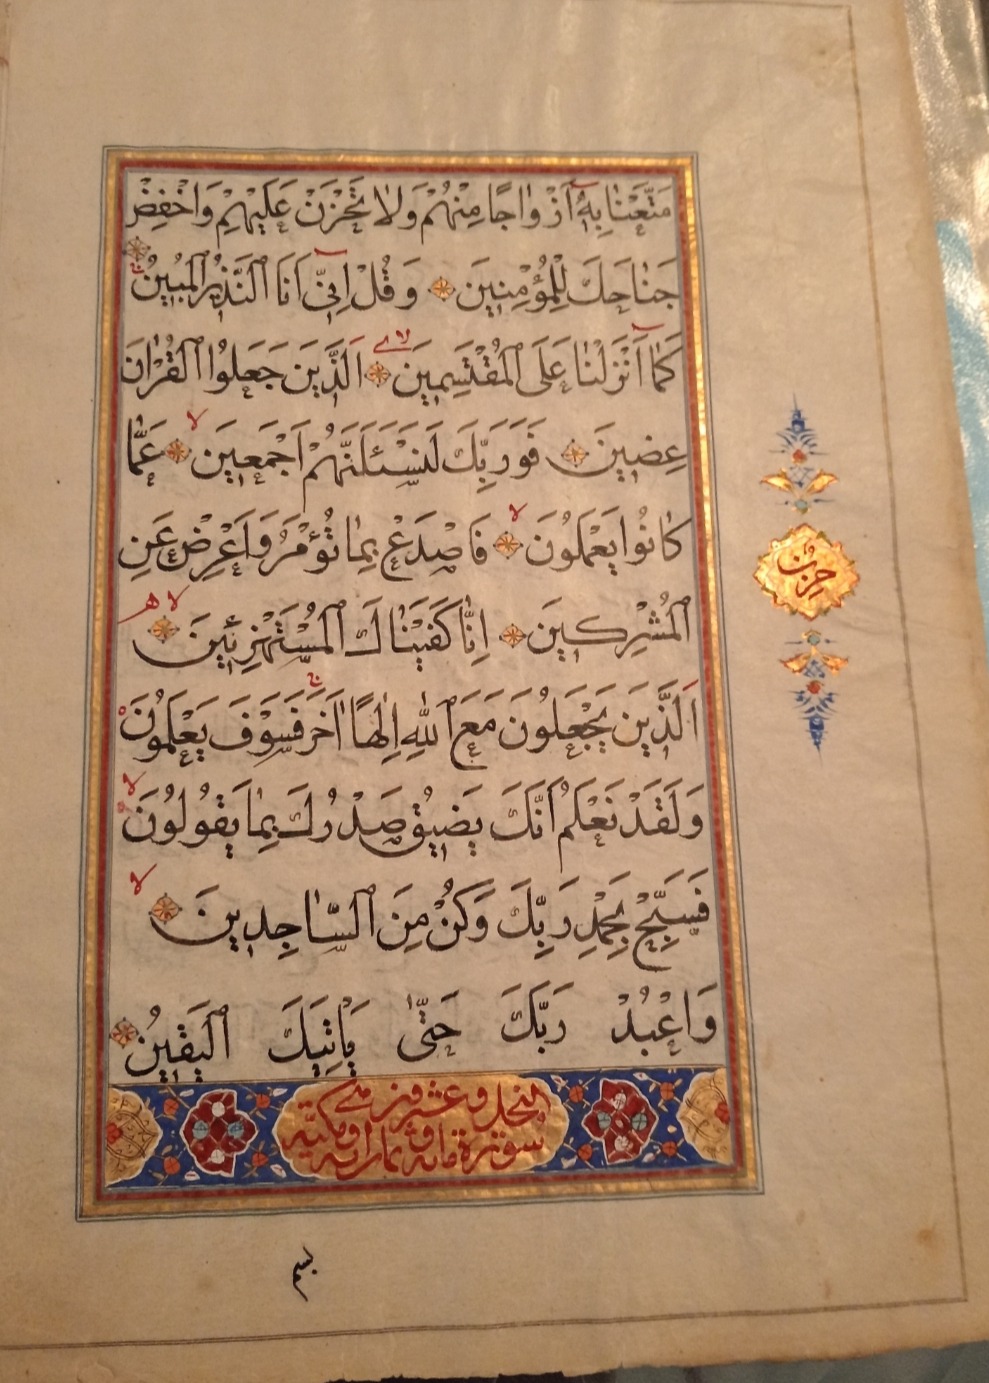 مَتَّعْنٰا بِهٖٓ اَزْوٰاجًا مِنْهُمْ وَلاٰ تَحْزَنْ عَلَيْهِمْ وَاخْفِضْ
جَنٰاحَكَ لِلْمُؤْمِنِينَ وَقُلْ اِنّٖٓي اَنَا النَّذٖيرُ الْمُبٖينُ
كَمٰٓا اَنْزَلْنٰا عَلَى الْمُقْتَسِمٖينَ اَلَّذٖينَ جَعَلُوا الْقُرْاٰنَ
عِضٖينَ فَوَرَبِّكَ لَنَسْئَلَنَّهُمْ اَجْمَعٖينَ عَمّٰا
كٰانُوا يَعْمَلُونَ فَاصْدَعْ بِمٰا تُؤْمَرُ وَاَعْرِضْ عَنِ
الْمُشْرِكٖينَ اِنّٰا كَفَيْنٰاكَ الْمُسْتَهْزِئٖينَ
اَلَّذٖينَ يَجْعَلُونَ مَعَ اللّٰهِ اِلٰهًا اٰخَرَ فَسَوْفَ يَعْلَمُونَ
وَلَقَدْ نَعْلَمُ اَنَّكَ يَضٖيقُ صَدْرُكَ بِمٰا يَقُولُونَ
فَسَبِّحْ بِحَمْدِ رَبِّكَ وَكُنْ مِنَ السّٰاجِدٖينَ
وَاعْبُدْ رَبَّكَ حَتّٰى يَاْتِيَكَ الْيَقٖينُ
حزب
النحل وعشرون
سورة مائة وثمان اية مكية